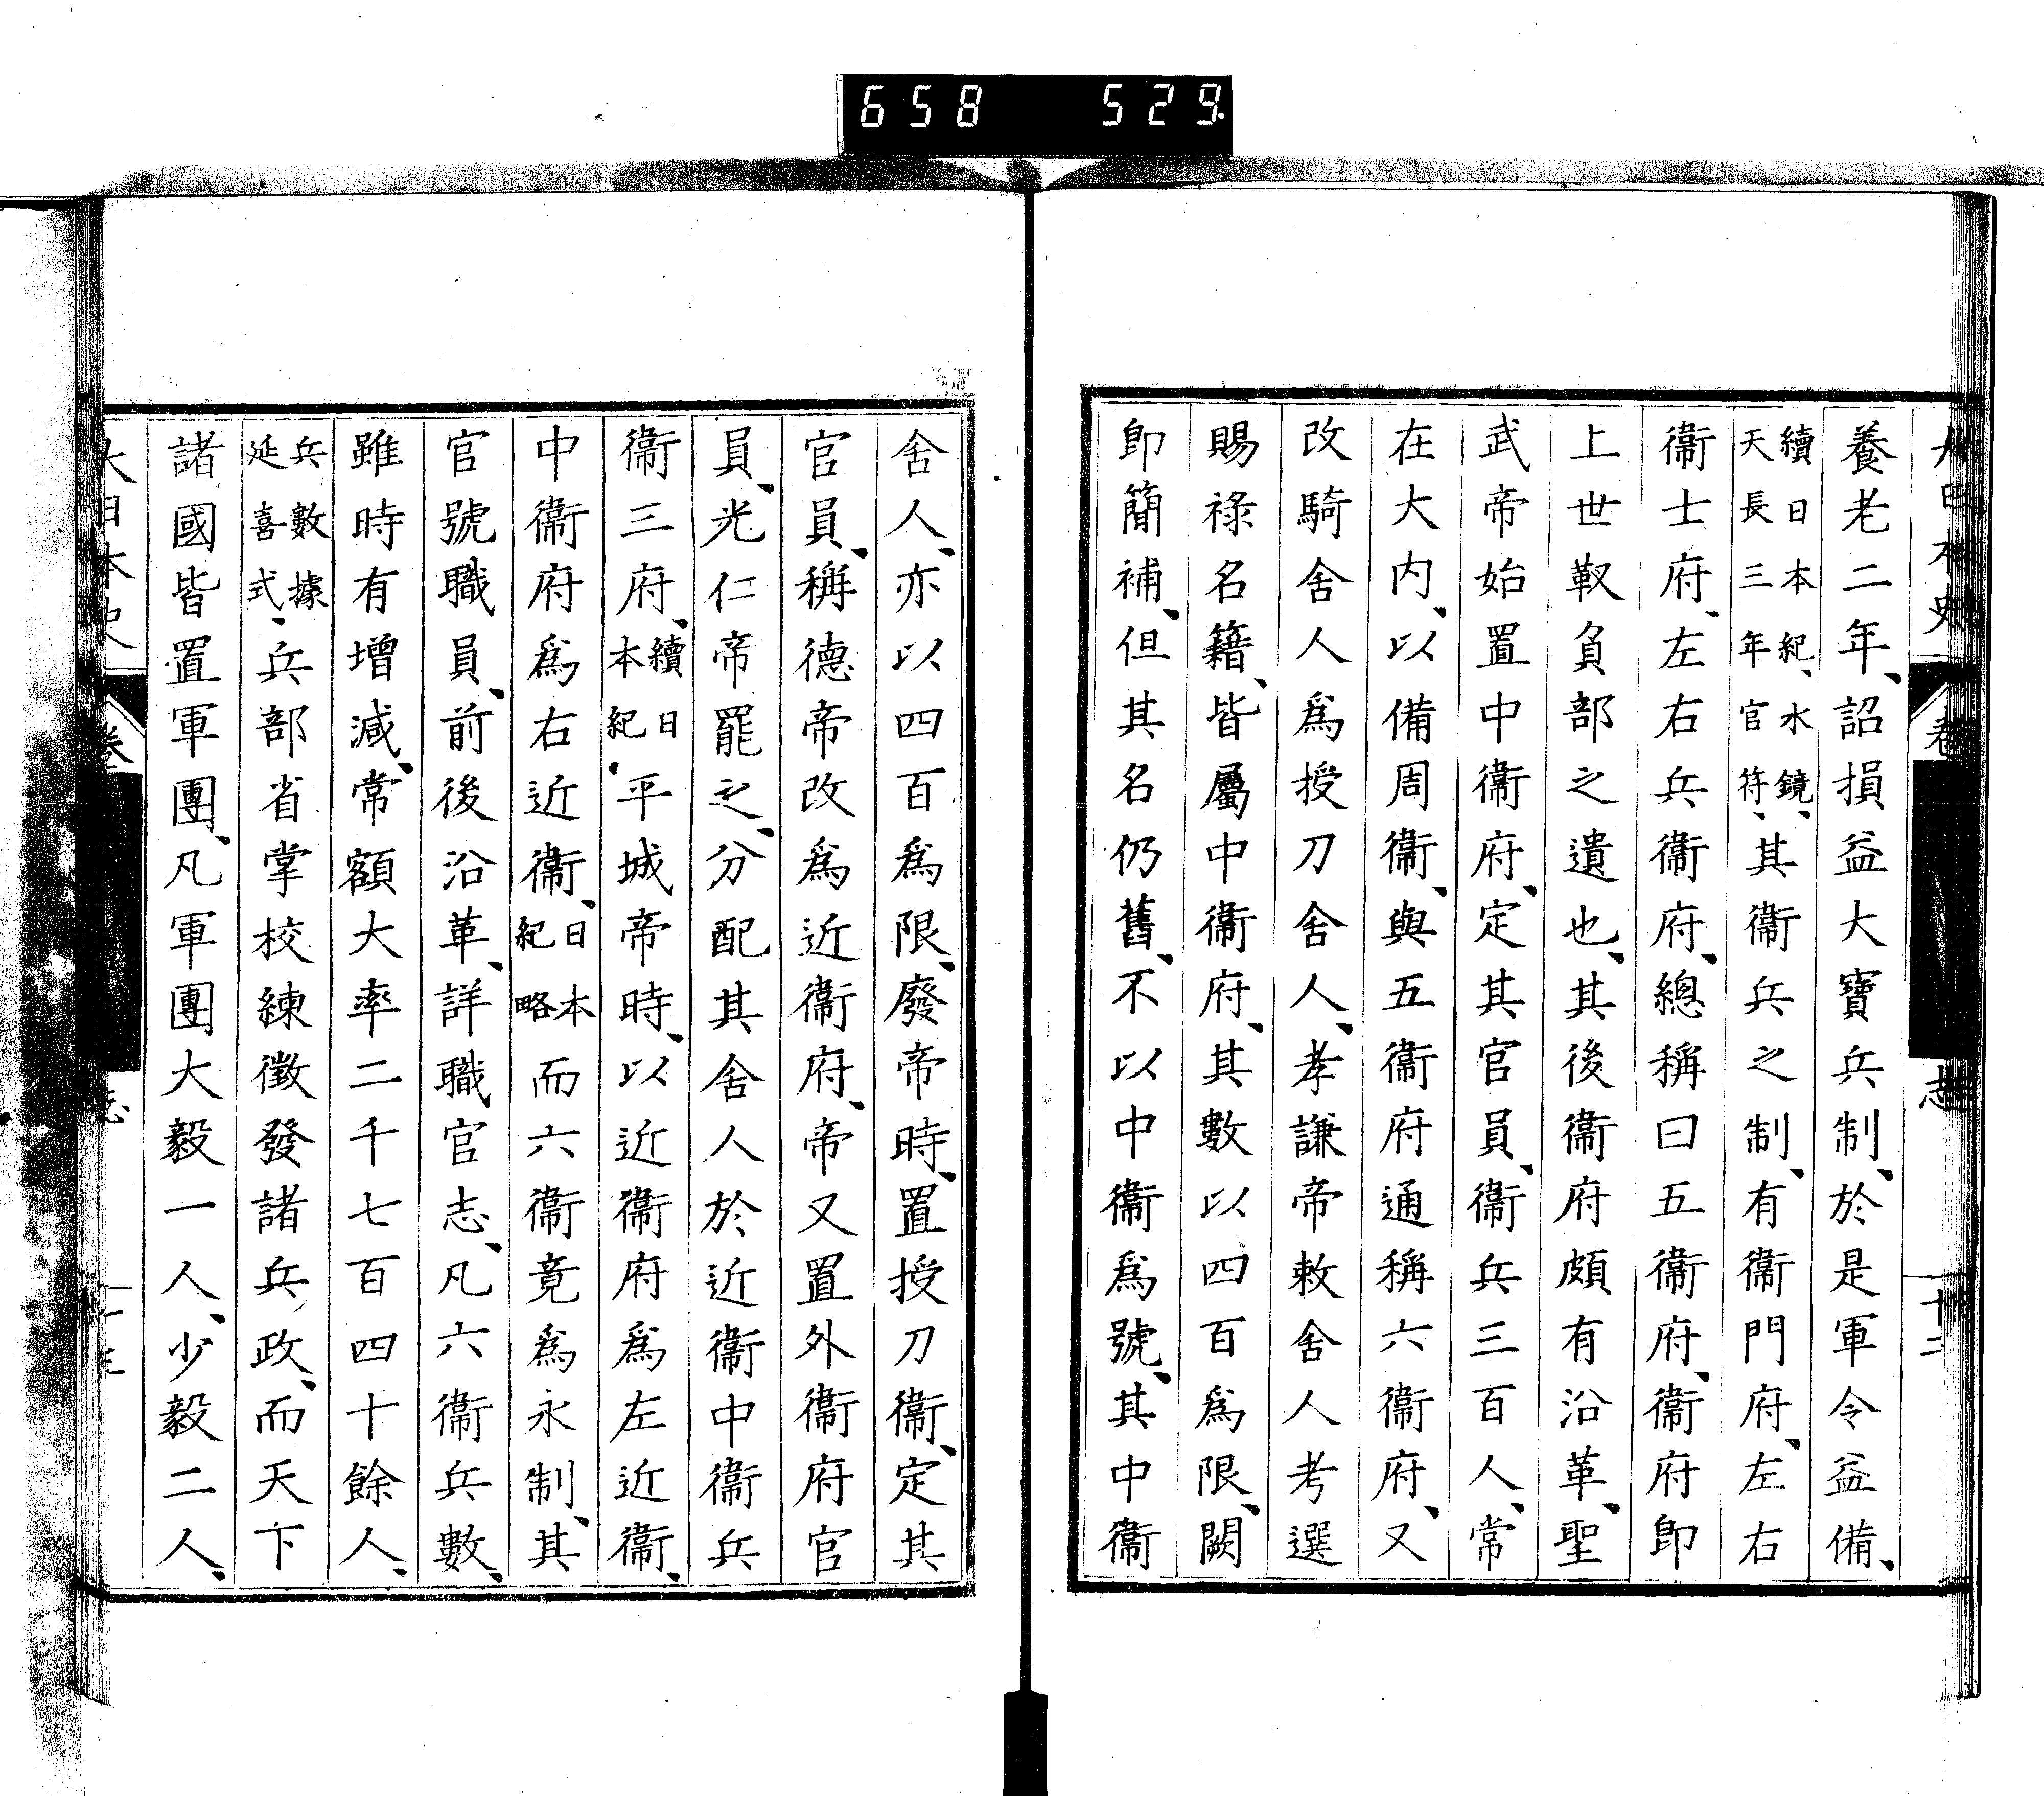 658 529
大日本史 卷 志 十二
養老二年、詔損益大寶兵制、於是軍令益備、
續日本紀、水鏡、天長三年官符、其衞兵之制、有衞門府、左右
衞士府、左右兵衞府、總稱曰五衞府、衞府卽
上世靫負部之遺也、其後衞府頗有沿革、聖
武帝始置中衞府、定其官員、衞兵三百人、常
在大內、以備周衞、與五衞府通稱六衞府、又
改騎舍人爲授刀舍人、孝謙帝敕舍人考選
賜祿名籍、皆屬中衞府、其數以四百爲限、闕
卽簡補、但其名仍舊、不以中衞爲號、其中衞
舍人、亦以四百爲限、廢帝時、置授刀衞、定其
官員、稱德帝改爲近衞府、帝又置外衞府官
員、光仁帝罷之、分配其舍人於近衞中衞兵
衞三府、續日本紀、平城帝時、以近衞府爲左近衞、
中衞府爲右近衞、日本紀略而六衞竟爲永制、其
官號職員、前後沿革、詳職官志、凡六衞兵數、
雖時有增減、常額大率二千七百四十餘人、
兵數據延喜式、兵部省掌校練徵發諸兵政、而天下
諸國皆置軍團、凡軍團大毅一人、少毅二人、
大日本史 卷 志